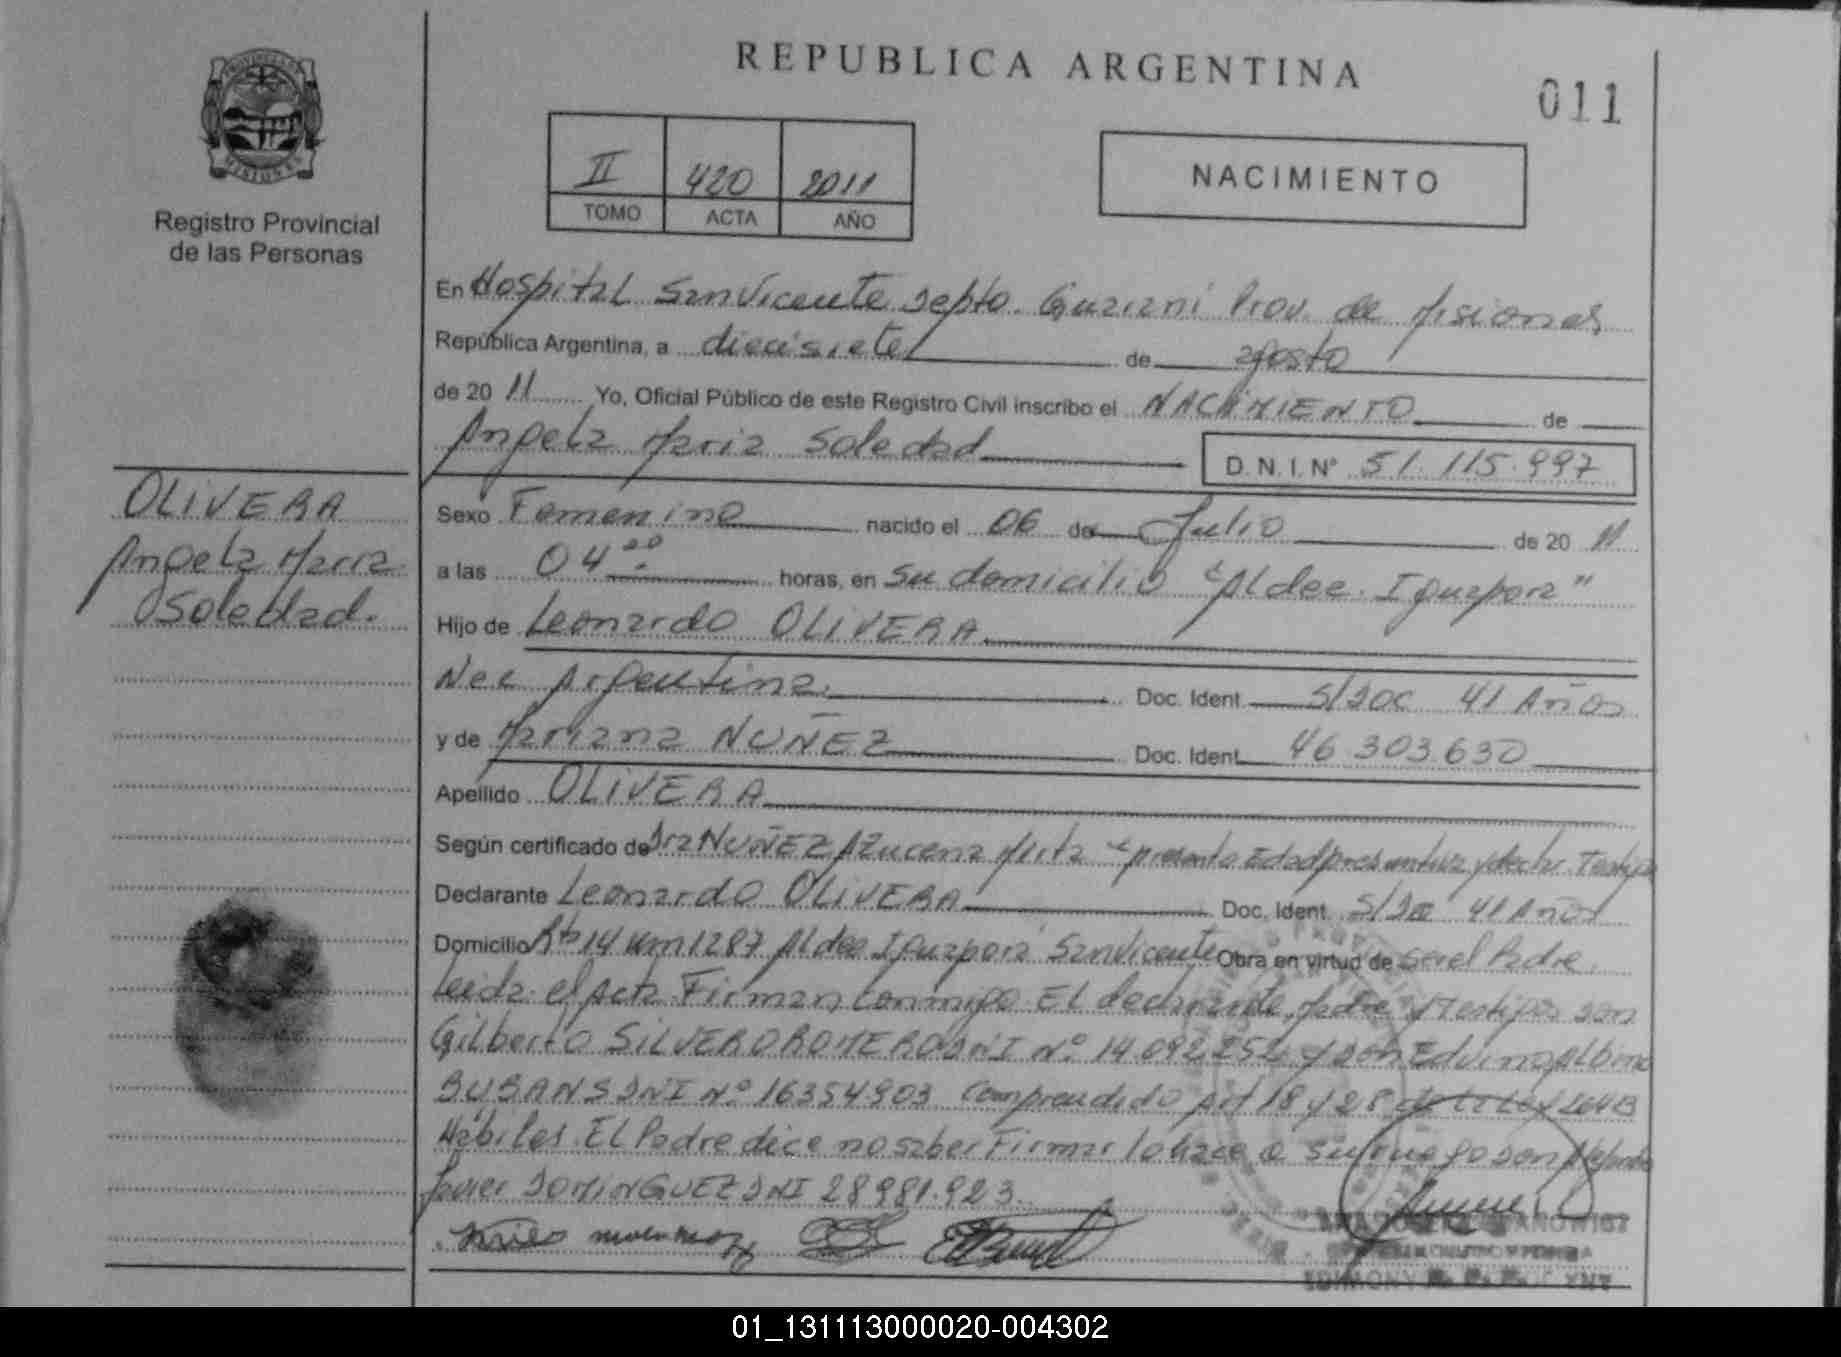 PROVINCIA DE
MISIONES
Registro Provincial
de las Personas
REPUBLICA ARGENTINA
011
II 420 2011
TOMO ACTA AÑO
NACIMIENTO
En Hospital San Vicente Depto. Guaraní Prov. de Misiones
República Argentina, a diecisiete de agosto
de 20 11 Yo, Oficial Público de este Registro Civil inscribo el NACIMIENTO de
Angela Maria Soledad D.N.I. Nº 51.115.997
OLIVERA
Angela Maria
Soledad.
Sexo Femenino nacido el 06 de Julio de 20 11
a las 04 20 horas, en Su domicilio "Aldea Iguapora"
Hijo de Leonardo OLIVERA
Nac Argentina. Doc. Ident. S/Doc 41 Años
y de Mariana NUÑEZ Doc. Ident. 46 303.630
Apellido OLIVERA
Según certificado de Dra NUÑEZ Azucena presenta Edad presuntiva y Testigos
Declarante Leonardo OLIVERA Doc. Ident. S/Doc 41 Años
Domicilio Rta 14 Km 1287 Aldea Iguapora San Vicente Obra en virtud de Ser el Padre.
Leida el Acta Firman conmigo El declarante, Madre y Testigos Don
Gilberto SILVERO ROMERO DNI Nº 14 092 252 y Don Edvino Albino
BUBANS DNI Nº 16354903 comprendido Art 18 y 28 de la Ley
Hábiles. El Padre dice no saber Firmar lo hace a su ruego Don Alejandro
Javier DOMINGUEZ DNI 28981.923
01_131113000020-004302